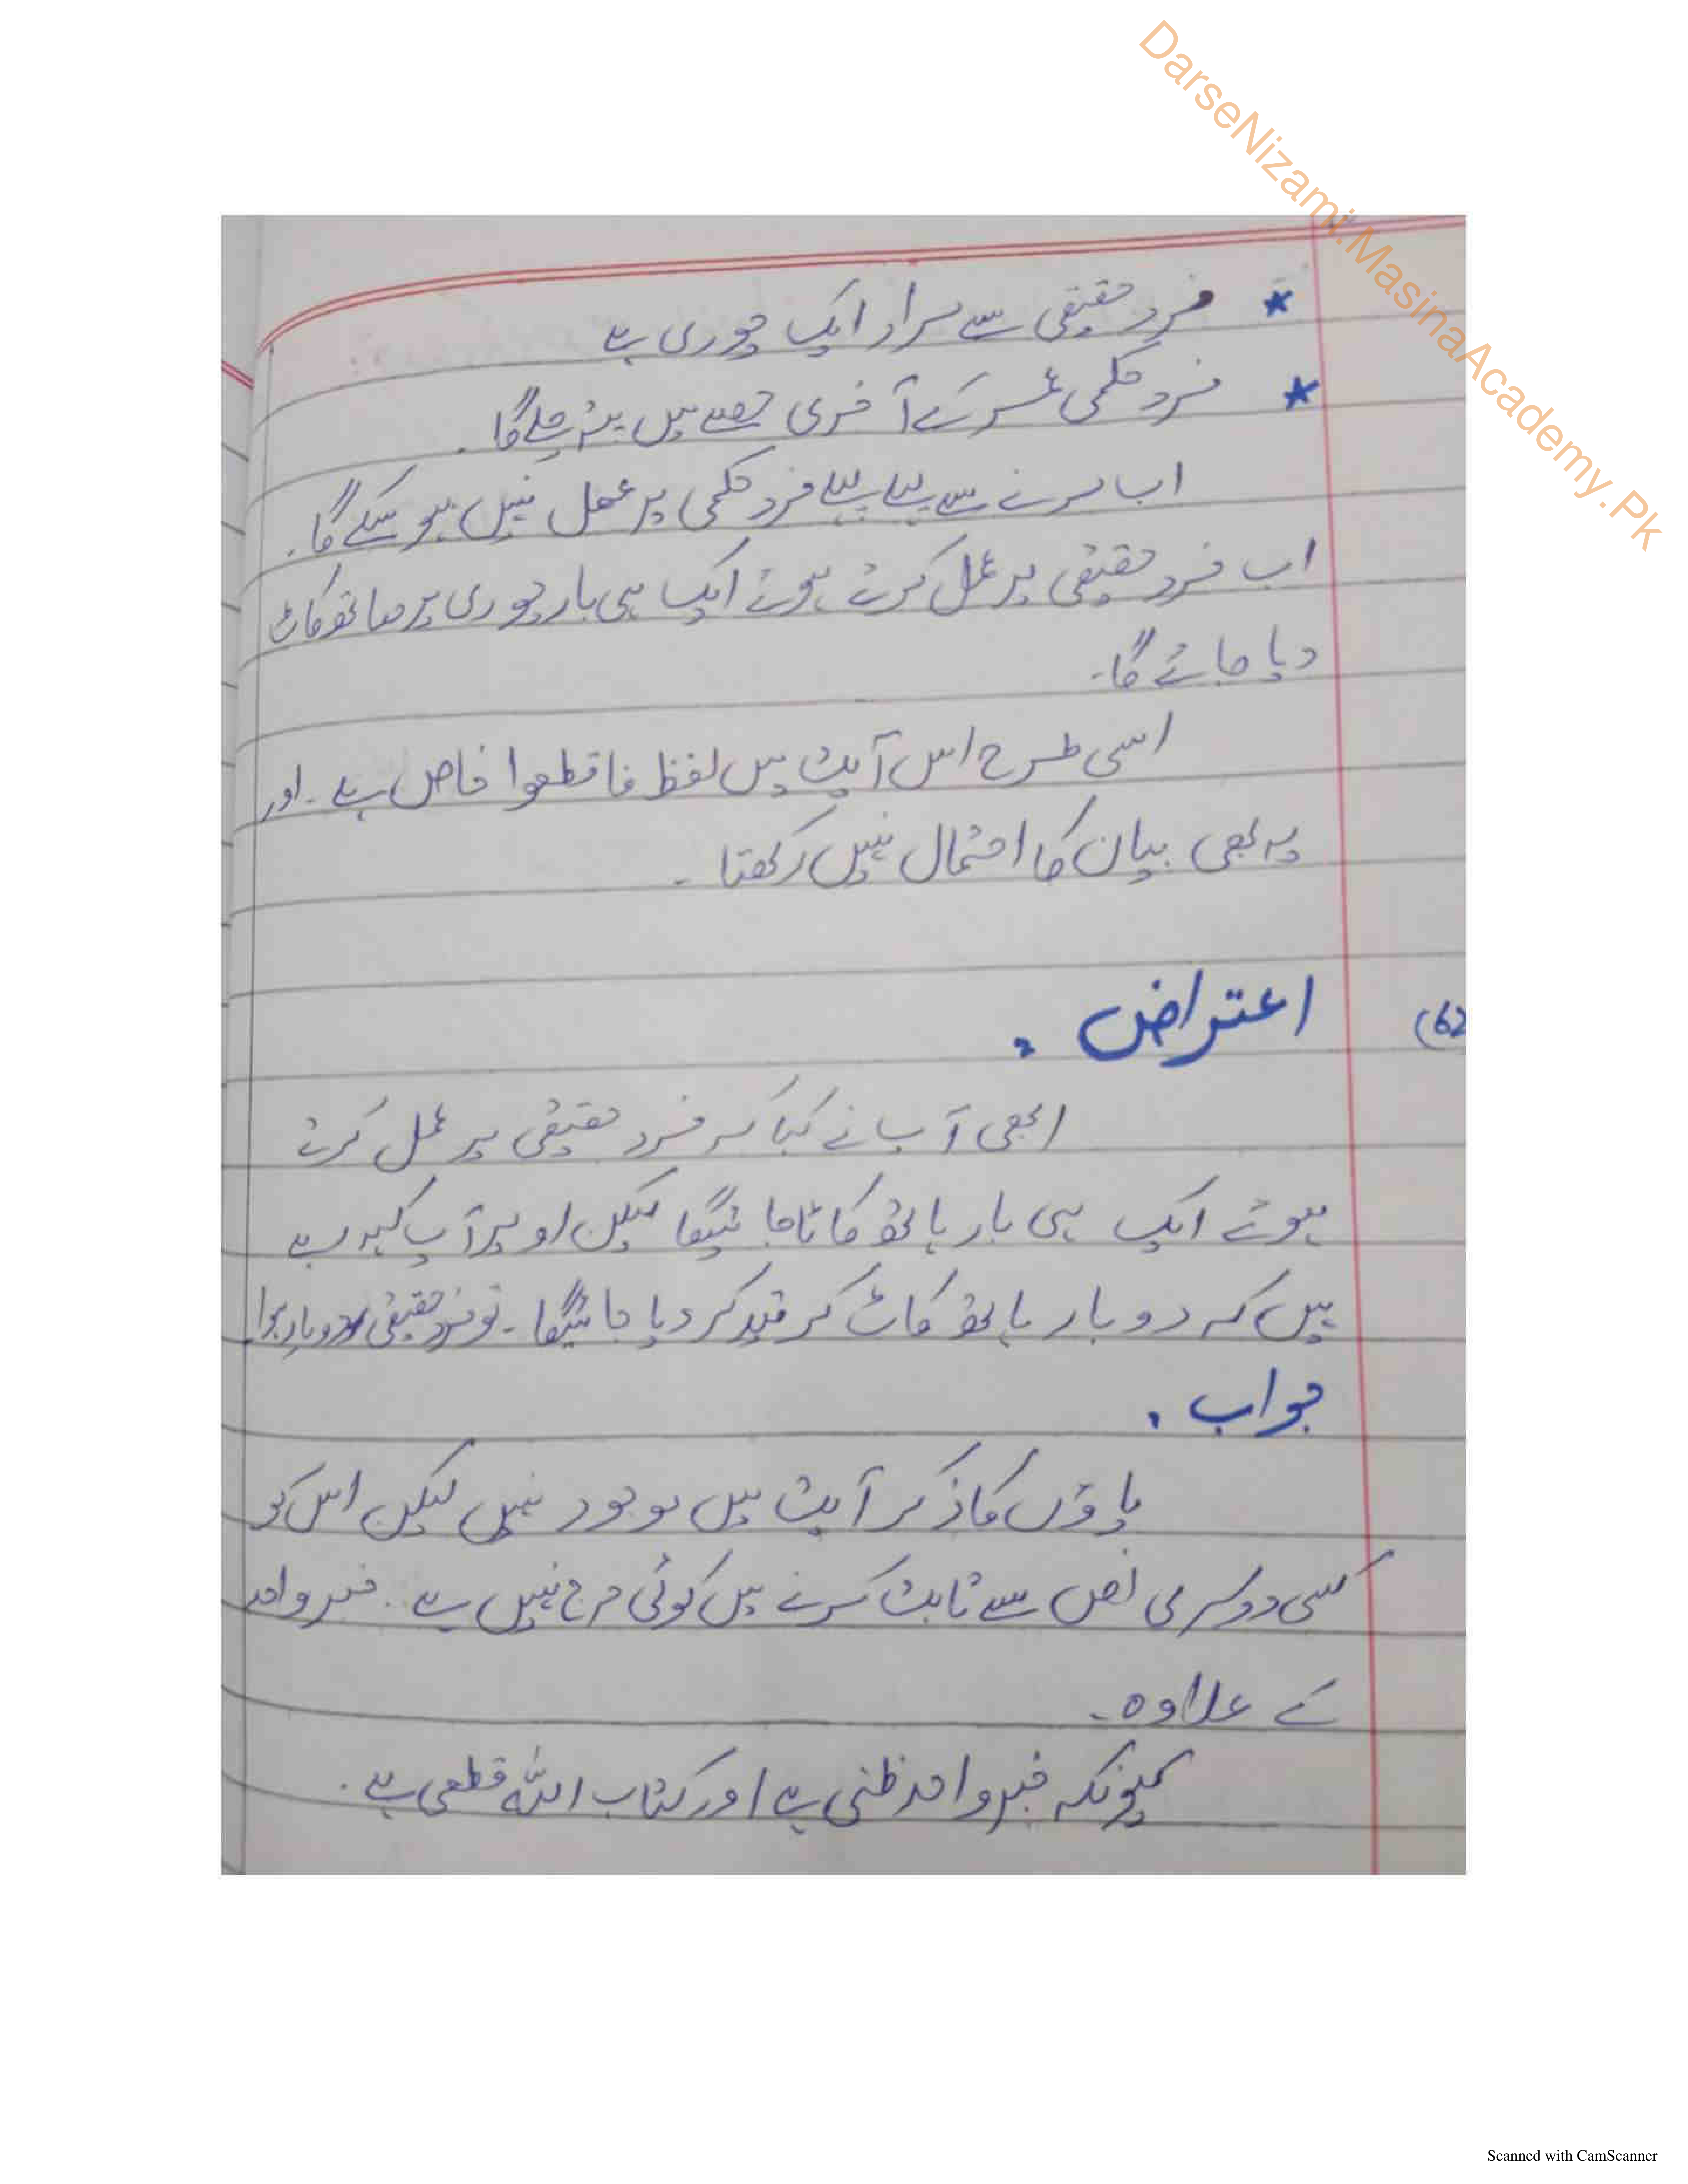 DarseNizami.MasinaAcademy.Pk
* فرد حقیقی سے مراد ایک چوری ہے
* فرد حکمی عمر کے آخری حصے میں پتہ چلے گا۔
اب مرنے سے پہلے پہلے فرد حکمی پر عمل نہیں ہو سکے گا۔
اب فرد حقیقی پر عمل کرتے ہوئے ایک ہی بار چوری پر ہاتھ کاٹ
دیا جائے گا۔
اسی طرح اس آیت میں لفظ فاقطعوا خاص ہے۔ اور
یہ بھی بیان کا احتمال نہیں رکھتا۔
(6) اعتراض :
ابھی آپ نے کہا کہ فرد حقیقی پر عمل کرتے
ہوئے ایک ہی بار ہاتھ کاٹا جائیگا لیکن اوپر آپ کہہ رہے
ہیں کہ دو بار ہاتھ کاٹ کر قید کر دیا جائیگا۔ تو فرد حقیقی دو بار ہوا
جواب :
پاؤں کا ذکر آیت میں موجود نہیں لیکن اس کو
کسی دوسری نص سے ثابت کرنے میں کوئی حرج نہیں ہے۔ خبر واحد
کے علاوہ۔
کیونکہ خبر واحد ظنی ہے اور کتاب اللہ قطعی ہے۔
Scanned with CamScanner